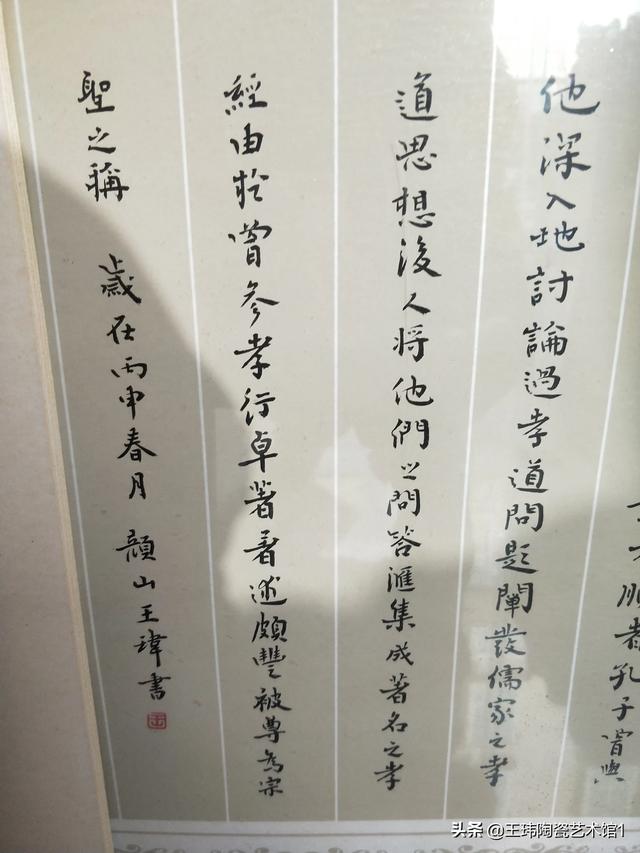 順者孔子曾與
他深入地討論過孝道問題闡發儒家之孝
道思想後人將他們之問答匯集成著名之孝
經由於曾參孝行卓著著述頗豐被尊為宗
聖之稱 歲在丙申春月 顏山王瑋書
头条 @王玮陶瓷艺术馆1